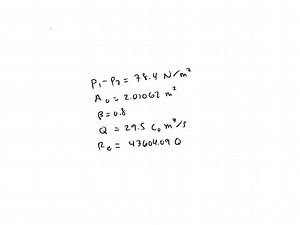 P₁-P₂ = 78.4 N/m²
A₀ = 2.01062 m²
β = 0.8
Q = 29.5 C₀ m³/s
Re = 43604.09 Q